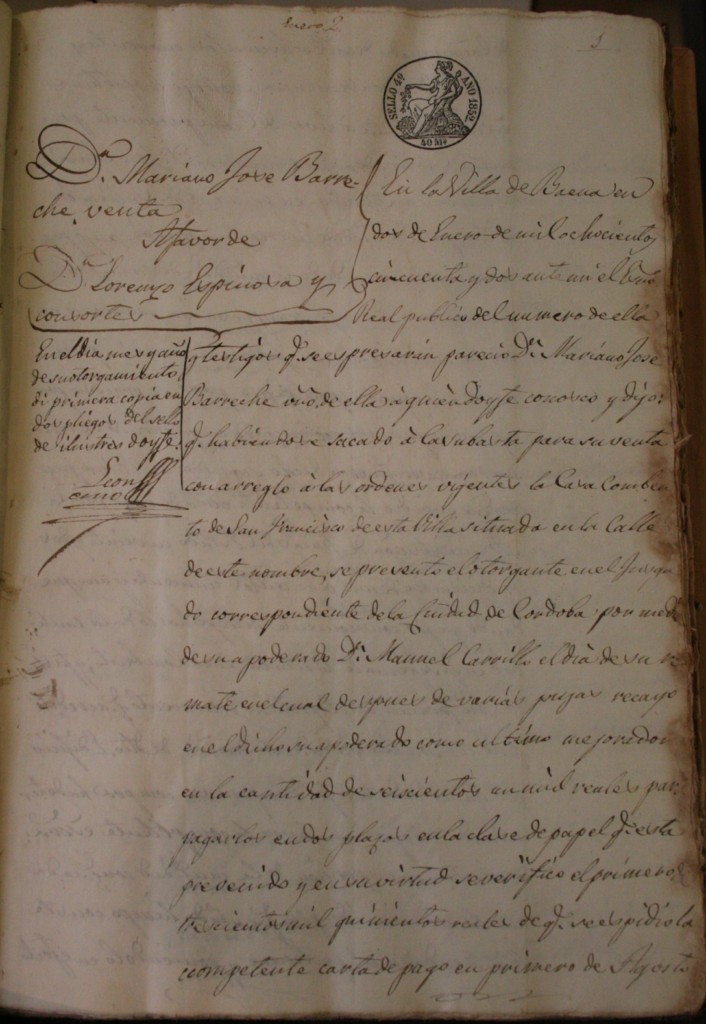 Enero 2
1
SELLO 4º AÑO 1852.
40 Ms
Dn. Mariano Jose Barre-
che, venta
Afavor de
Dn. Lorenzo Espinosa y
consortes
En el dia mes y año
de su otorgamiento
di primera copia en
dos pliegos del sello
de ilustres doy fe.
Leon
En la Villa de Baena en
dos de Enero de mil ochocientos
cincuenta y dos ante mi el Esno
Real publico del numero de ella
y testigos q. se espresarán parecio Dn. Mariano Jose
Barreche vno. de ella à quien doy fe conosco y dijo:
q. habiendose sacado à la subasta para su venta
con arreglo à las ordenes vijentes la Casa Comben
to de San Francisco de esta Villa situada en la Calle
de este nombre, se presentó el otorgante en el Jusga
do correspondiente de la Ciudad de Cordoba por medio
de su apoderado Dn. Manuel Carrillo el dia de su re
mate en el cual despues de varias pujas recayó
en el dicho su apoderado como ultimo mejorador
en la cantidad de seiscientos un mil reales para
pagarlos en dos plazos en la clase de papel q. esta
prevenido y en su virtud se verifico el primero de
trescientos mil quinientos reales de q. se espidio la
competente carta de pago en primero de Agosto